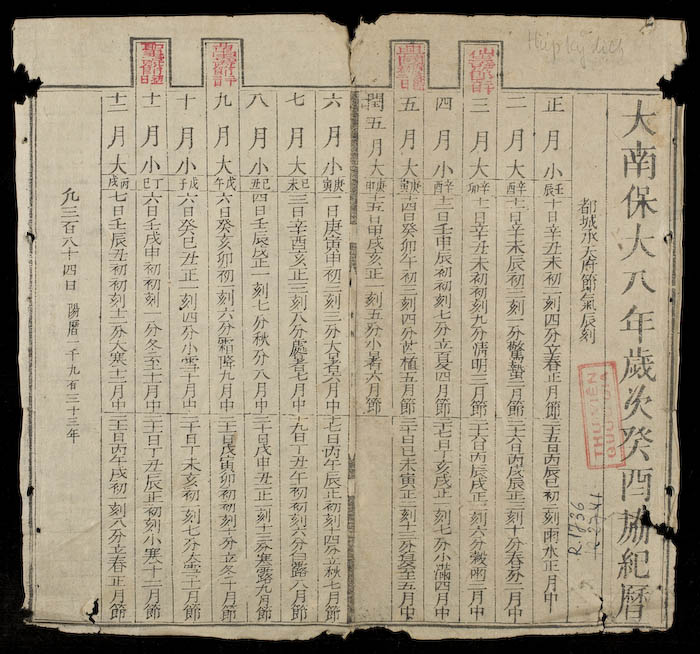 Hiệp kỷ lịch
大南保大八年歲次癸酉協紀曆
都城承天府節氣辰刻
正月小 壬辰 十日辛丑未初一刻四分立春正月節 二十五日丙辰巳初二刻雨水正月中
二月大 辛酉 十一日辛未辰初三刻一分驚蟄二月節 二十六日丙戌辰正三刻十分春分二月中
三月大 辛卯 十一日辛丑未初初刻九分清明三月節 二十六日丙辰戌正一刻六分穀雨三月中
四月小 辛酉 十二日壬申辰初初刻七分立夏四月節 二十七日丁亥戌正一刻七分小滿四月中
五月大 庚寅 十四日癸卯午初三刻四分芒植五月節 三十日己未寅正三刻十三分夏至五月中
閏五月大 庚申 十五日甲戌亥正一刻五分小暑六月節
六月小 庚寅 一日庚寅申初三刻三分大暑六月中 十七日丙午辰正初刻十四分立秋七月節
七月小 己未 三日辛酉亥正三刻八分處暑七月中 十九日丁丑午初初刻六分白露八月節
八月小 己丑 四日壬辰戌正一刻七分秋分八月中 二十日戊申丑正一刻十三分寒露九月節
九月大 戊午 六日癸亥卯初一刻六分霜降九月中 二十一日戊寅卯初初刻十三分立冬十月節
十月小 戊子 六日癸巳丑正一刻四分小雪十月中 二十日丁未亥初一刻七分大雪十一月節
十一月小 丁巳 六日壬戌申初初刻一分冬至十一月中 二十一日丁丑辰正初刻小寒十二月節
十二月大 丙戌 七日壬辰丑初初刻十二分大寒十二月中 二十一日丙午戌初一刻八分立春正月節
凡三百八十四日 陽曆一千九百三十三年
THƯ VIỆN
QUỐC GIA
R.1836